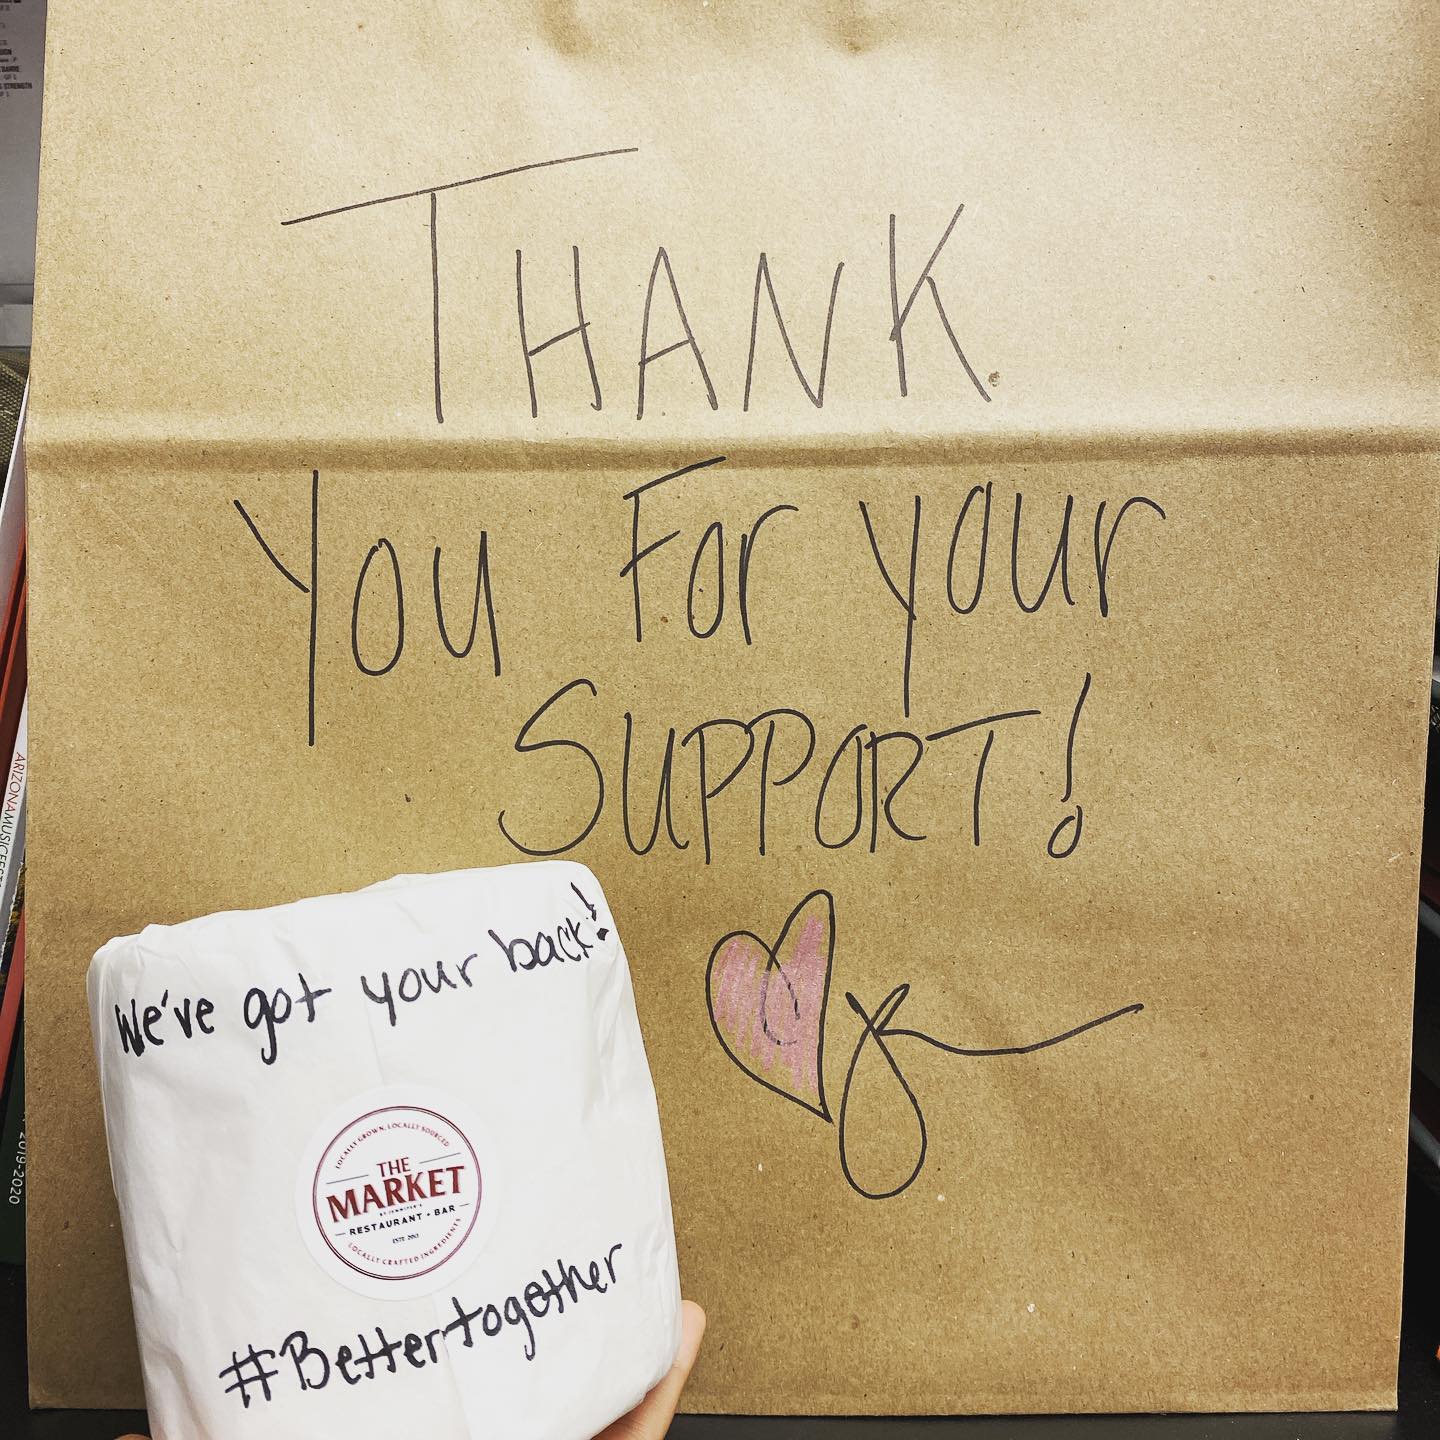 THANK
You For your
SUPPORT!
We've got your back!
LOCALLY GROWN, LOCALLY SOURCED
THE
MARKET
BY JENNIFER'S
RESTAURANT + BAR
ESTD 2013
LOCALLY CRAFTED INGREDIENTS
#Bettertogether
ARIZONAMUSICFEST
2019-2020
STRENGTH